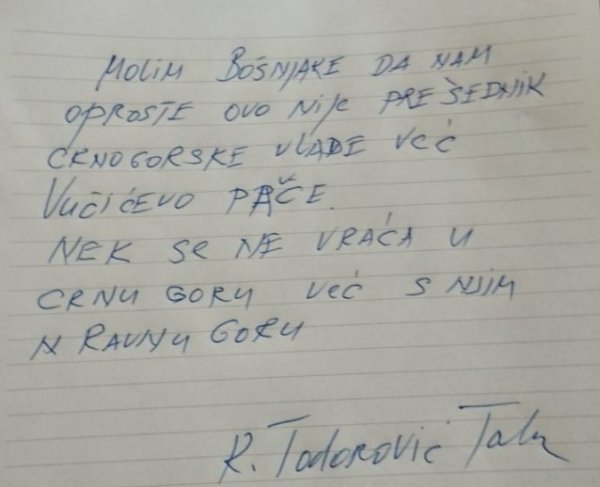 MOLIM BOŠNJAKE DA NAM
OPROSTE OVO NIJE PREŠEDNIK
CRNOGORSKE VLADE VEĆ
VUČIĆEVO PAČE.
NEK SE NE VRAĆA U
CRNU GORU VEĆ S NJIM
N RAVNU GORU
R. Todorović Tala